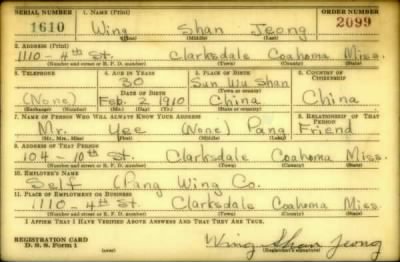 SERIAL NUMBER 1. NAME (Print) ORDER NUMBER
1610 Wing Shan Jeong 2099
(First) (Middle) (Last)
2. ADDRESS (Print)
1110 - 4th St. Clarksdale Coahoma Miss.
(Number and street or R. F. D. number) (Town) (County) (State)
3. TELEPHONE 4. AGE IN YEARS 5. PLACE OF BIRTH 6. COUNTRY OF CITIZENSHIP
30 Sun Wu Shan
DATE OF BIRTH (Town or county)
(None) Feb. 2 1910 China China
(Exchange) (Number) (Mo.) (Day) (Yr.) (State or country)
7. NAME OF PERSON WHO WILL ALWAYS KNOW YOUR ADDRESS 8. RELATIONSHIP OF THAT PERSON
Mr. Yee (None) Pang Friend
(Mr., Mrs., Miss) (First) (Middle) (Last)
9. ADDRESS OF THAT PERSON
104 - 10th St. Clarksdale Coahoma Miss.
(Number and street or R. F. D. number) (Town) (County) (State)
10. EMPLOYER'S NAME
Self (Pang Wing Co.
11. PLACE OF EMPLOYMENT OR BUSINESS
1110 - 4th St. Clarksdale Coahoma Miss.
(Number and street or R. F. D. number) (Town) (County) (State)
I AFFIRM THAT I HAVE VERIFIED ABOVE ANSWERS AND THAT THEY ARE TRUE.
REGISTRATION CARD
D. S. S. Form 1 (over) Wing Shan Jeong
(Registrant's signature)